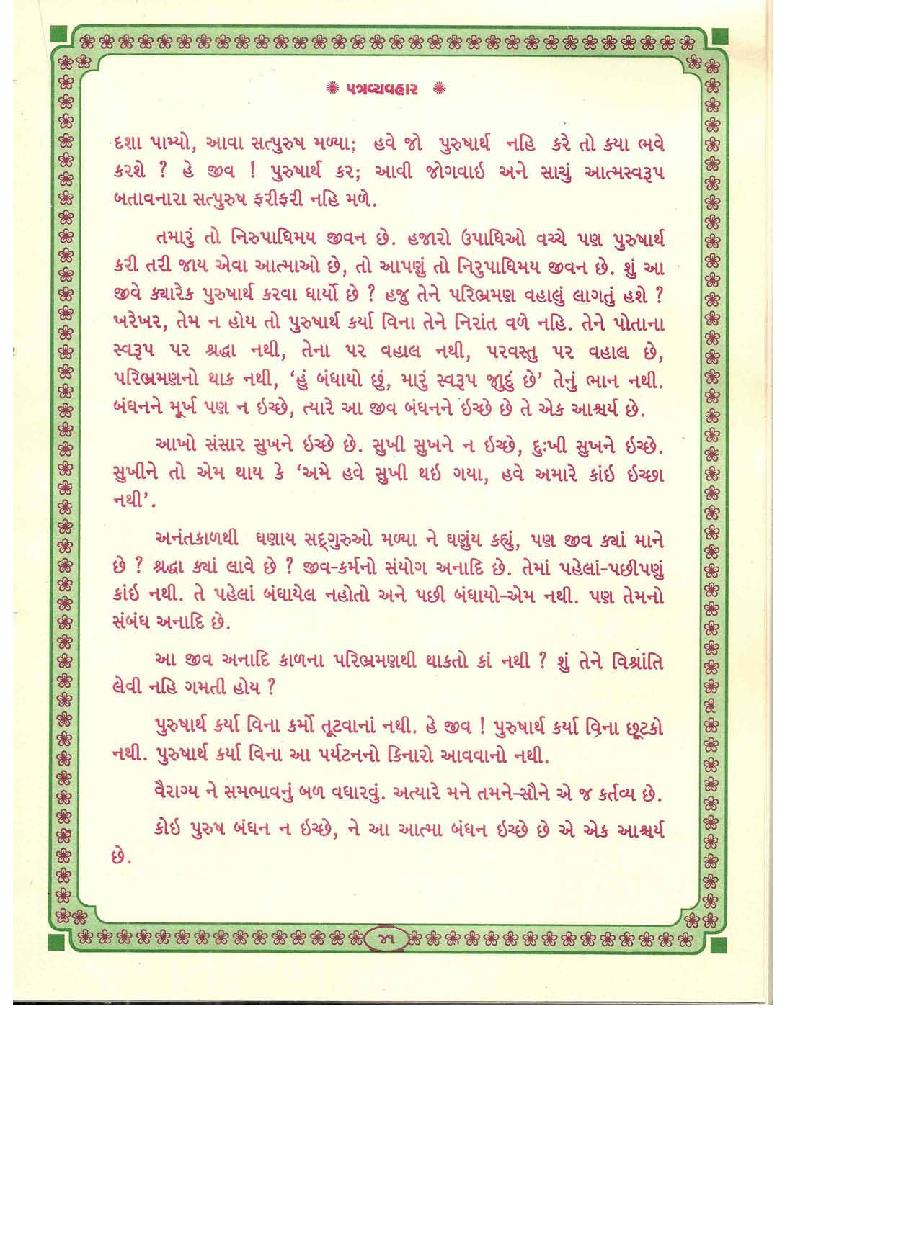 પત્રવ્યવહાર
દશા પામ્યો, આવા સત્પુરુષ મળ્યા; હવે જો પુરુષાર્થ નહિ કરે તો ક્યા ભવે
કરશે ? હે જીવ ! પુરુષાર્થ કર; આવી જોગવાઇ અને સાચું આત્મસ્વરૂપ
બતાવનારા સત્પુરુષ ફરીફરી નહિ મળે.
તમારું તો નિરુપાધિમય જીવન છે. હજારો ઉપાધિઓ વચ્ચે પણ પુરુષાર્થ
કરી તરી જાય એવા આત્માઓ છે, તો આપણું તો નિરુપાધિમય જીવન છે. શું આ
જીવે ક્યારેક પુરુષાર્થ કરવા ધાર્યો છે ? હજુ તેને પરિભ્રમણ વહાલું લાગતું હશે ?
ખરેખર, તેમ ન હોય તો પુરુષાર્થ કર્યા વિના તેને નિરાંત વળે નહિ. તેને પોતાના
સ્વરૂપ પર શ્રદ્ધા નથી, તેના પર વહાલ નથી, પરવસ્તુ પર વહાલ છે,
પરિભ્રમણનો થાક નથી, ‘હું બંધાયો છું, મારું સ્વરૂપ જાુદું છે’ તેનું ભાન નથી.
બંધનને મૂર્ખ પણ ન ઇચ્છે, ત્યારે આ જીવ બંધનને ઇચ્છે છે તે એક આશ્ચર્ય છે.
આખો સંસાર સુખને ઇચ્છે છે. સુખી સુખને ન ઇચ્છે, દુઃખી સુખને ઇચ્છે.
સુખીને તો એમ થાય કે ‘અમે હવે સુખી થઇ ગયા, હવે અમારે કાંઇ ઇચ્છા
નથી’.
અનંતકાળથી ઘણાય સદ્‌ગુરુઓ મળ્યા ને ઘણુંય કહ્યું, પણ જીવ ક્યાં માને
છે ? શ્રદ્ધા ક્યાં લાવે છે ? જીવ-કર્મનો સંયોગ અનાદિ છે. તેમાં પહેલાં-પછીપણું
કાંઇ નથી. તે પહેલાં બંધાયેલ નહોતો અને પછી બંધાયો-એમ નથી. પણ તેમનો
સંબંધ અનાદિ છે.
આ જીવ અનાદિ કાળના પરિભ્રમણથી થાકતો કાં નથી ? શું તેને વિશ્રાંતિ
લેવી નહિ ગમતી હોય ?
પુરુષાર્થ કર્યા વિના કર્મો તૂટવાનાં નથી. હે જીવ ! પુરુષાર્થ કર્યા વિના છૂટકો
નથી. પુરુષાર્થ કર્યા વિના આ પર્યટનનો કિનારો આવવાનો નથી.
વૈરાગ્ય ને સમભાવનું બળ વધારવું. અત્યારે મને તમને-સૌને એ જ કર્તવ્ય છે.
કોઇ પુરુષ બંધન ન ઇચ્છે, ને આ આત્મા બંધન ઇચ્છે છે એ એક આશ્ચર્ય
છે.